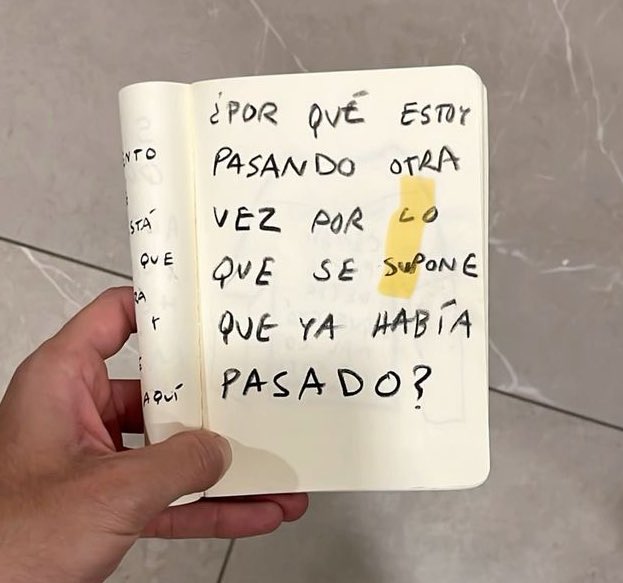 ¿POR QUÉ ESTOY
PASANDO OTRA
VEZ POR LO
QUE SE SUPONE
QUE YA HABÍA
PASADO?
STÁ
QUE
Y
AQUÍ